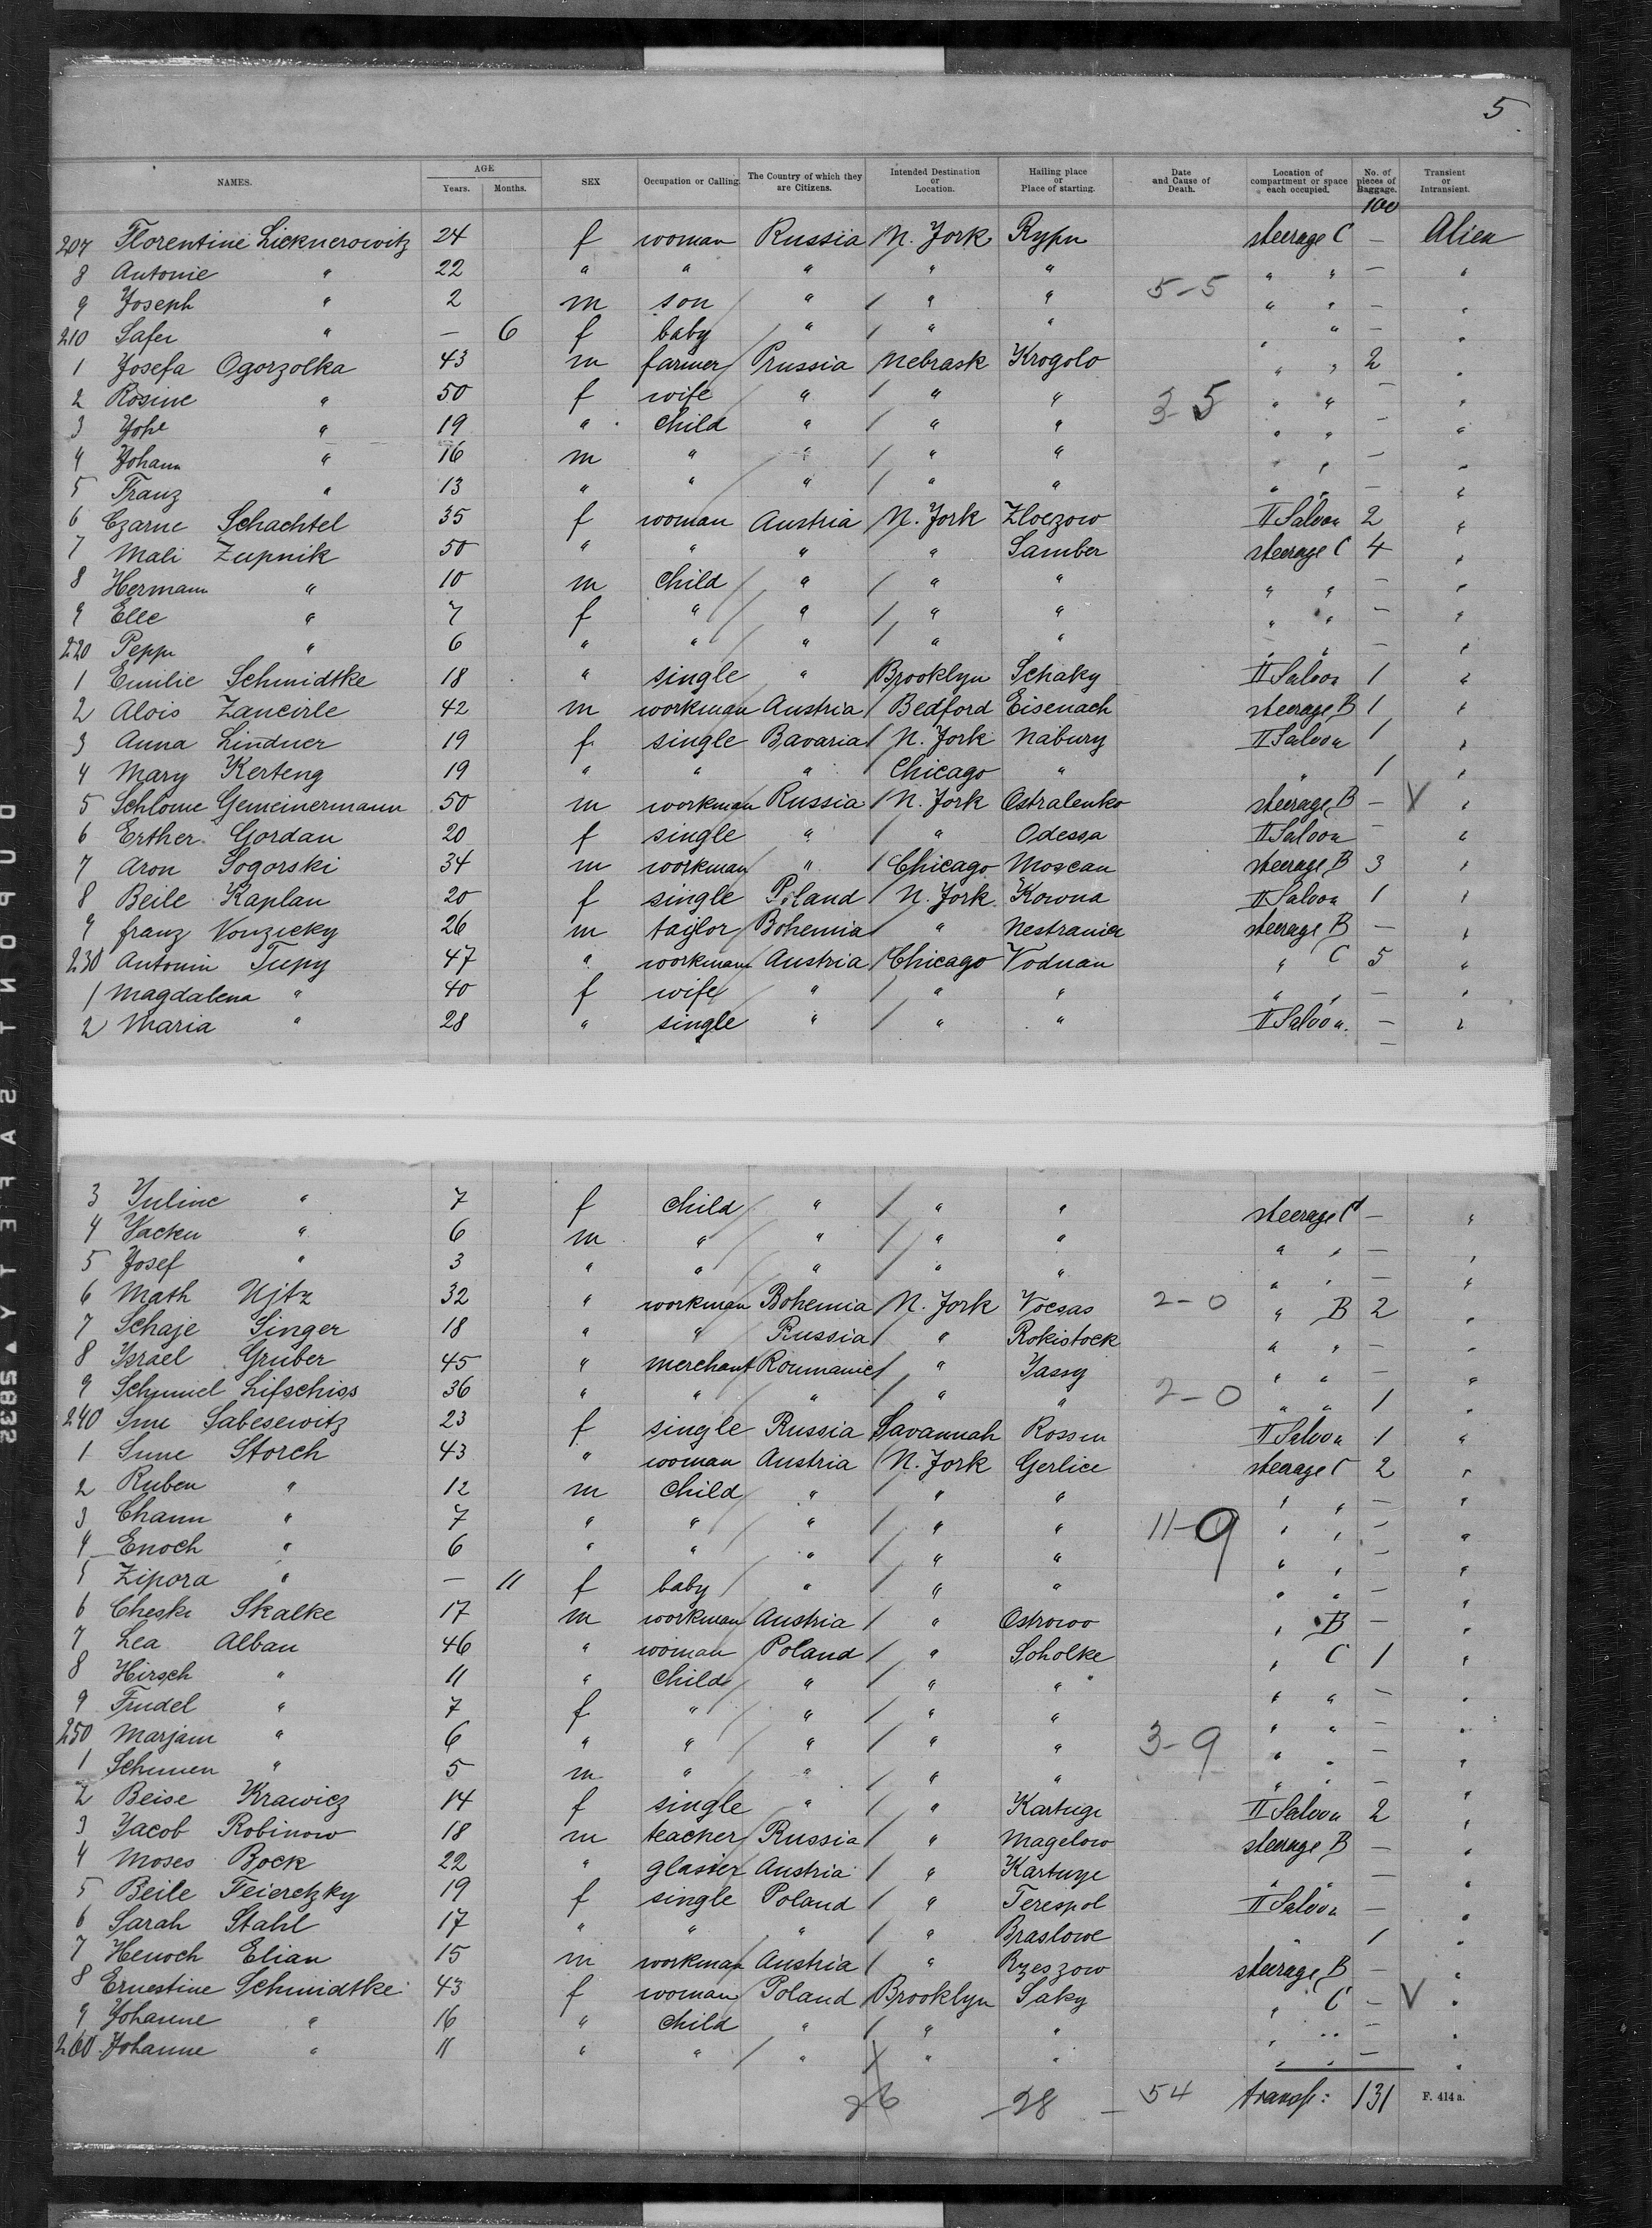 5
NAMES. AGE Years. Months. SEX Occupation or Calling. The Country of which they are Citizens. Intended Destination or Location. Hailing place or Place of starting. Date and Cause of Death. Location of compartment or space each occupied. No. of pieces of Baggage. Transient or Intransient.
100
207 Florentine Licknerowitz 24 f woman Russia N. York Rypn steerage C — Alien
8 Antonie " 22 " " " " " " " — "
9 Joseph " 2 m son " " " 5-5 " " — "
210 Safer " — 6 f baby " " " " — "
1 Josefa Ogorzolka 43 m farmer Prussia Nebrask Krogolo " " 2 "
2 Rosine " 50 f wife " " " 3-5 " " — "
3 " 19 " child " " " " " — "
4 Johann " 16 m " " " " " " — "
5 Franz " 13 " " " " " " " — "
6 Czarne Schachtel 35 f woman Austria N. York Zloczow II Saloon 2 "
7 Mali Zupnik 50 " " " " Samber steerage C 4 "
8 Hermann " 10 m child " " " " " — "
9 Elle " 7 f " " " " " " — "
220 Peppi " 6 " " " " " " " — "
1 Emilie Schmidtke 18 " single " Brooklyn Schaky II Saloon 1 "
2 Alois Zancirle 42 m workman Austria Bedford Eisenach steerage B 1 "
3 Anna Lindner 19 f single Bavaria N. York Nabury II Saloon 1 "
4 Mary Kerteng 19 " " " Chicago " " 1 "
5 Schlome Gemeinermann 50 m workman Russia N. York Ostralenko steerage B — V "
6 Erther Gordan 20 f single " " Odessa II Saloon — "
7 Aron Sogorski 34 m workman " Chicago Moscau steerage B 3 "
8 Beile Kaplan 20 f single Poland N. York Kowna II Saloon 1 "
9 Franz Vonzicky 26 m taylor Bohemia " Nestranier steerage B — "
230 Antonin Tupy 47 " workman Austria Chicago Vodnan " C 5 "
1 Magdalena " 40 f wife " " " " " — "
2 Maria " 28 " single " " " II Saloon — "
3 Juline " 7 f child " " " steerage C — "
4 " 6 m " " " " " " — "
5 Josef " 3 " " " " " " " — "
6 Math Ujtz 32 " workman Bohemia N. York Vocsas 2-0 " B 2 "
7 Schaje Singer 18 " " Russia " Rokistock " " — "
8 Israel Gruber 45 " merchant Roumanie " Jassy " " — "
9 Schmiel Lifschiss 36 " " " " " 2-0 " " 1 "
240 Sabesewitz 23 f single Russia Savannah Rossen II Saloon 1 "
1 Sune Storch 43 " woman Austria N. York Gerlice steerage C 2 "
2 Ruben " 12 m child " " " " " — "
3 Chann " 7 " " " " " 11-9 " " — "
4 Enoch " 6 " " " " " " " — "
5 Zipora " — 11 f baby " " " " " — "
6 Cheski Skalke 17 m workman Austria " Ostrowo " B — "
7 Lea Alban 46 " woman Poland " Soholke " C 1 "
8 Hirsch " 11 " child " " " " " — "
9 Frudel " 7 f " " " " " " — "
250 Marjam " 6 " " " " " 3-9 " " — "
1 Schimen " 5 m " " " " " " — "
2 Beise Krawicz 14 f single " " Kartuge II Saloon 2 "
3 Jacob Robinow 18 m teacher Russia " Magelow steerage B — "
4 Moses Bock 22 " glasier Austria " Kartuze " " — "
5 Beile Feieretzky 19 f single Poland " Terespol II Saloon — "
6 Sarah Stahl 17 " " " " Braslowe " 1 "
7 Henoch Elian 15 m workman Austria " Rzeszow steerage B — "
8 Ernestine Schmidtke 43 f woman Poland Brooklyn Saky " C — V "
9 Johanne " 16 " child " " " " " — "
260 Johanne " 11 " " " " " " " — "
26 28 — 54 transp: 131 F. 414 a.
DUPONT SAFETY ▲ 5832